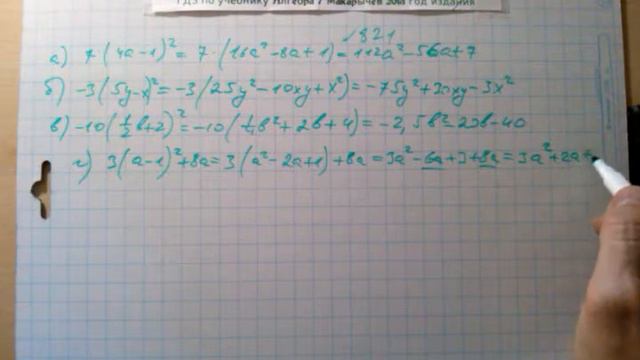 ГДЗ по учебнику Алгебра 7 Макарычев 2013 год издания
√821
а) 7·(4a-1)²=7·(16a²-8a+1)=112a²-56a+7
б) -3(5y-x)²=-3(25y²-10xy+x²)=-75y²+30xy-3x²
в) -10(½b+2)²=-10(¼b²+2b+4)=-2,5b²-20b-40
г) 3(a-1)²+8a=3(a²-2a+1)+8a=3a²-6a+3+8a=3a²+2a+